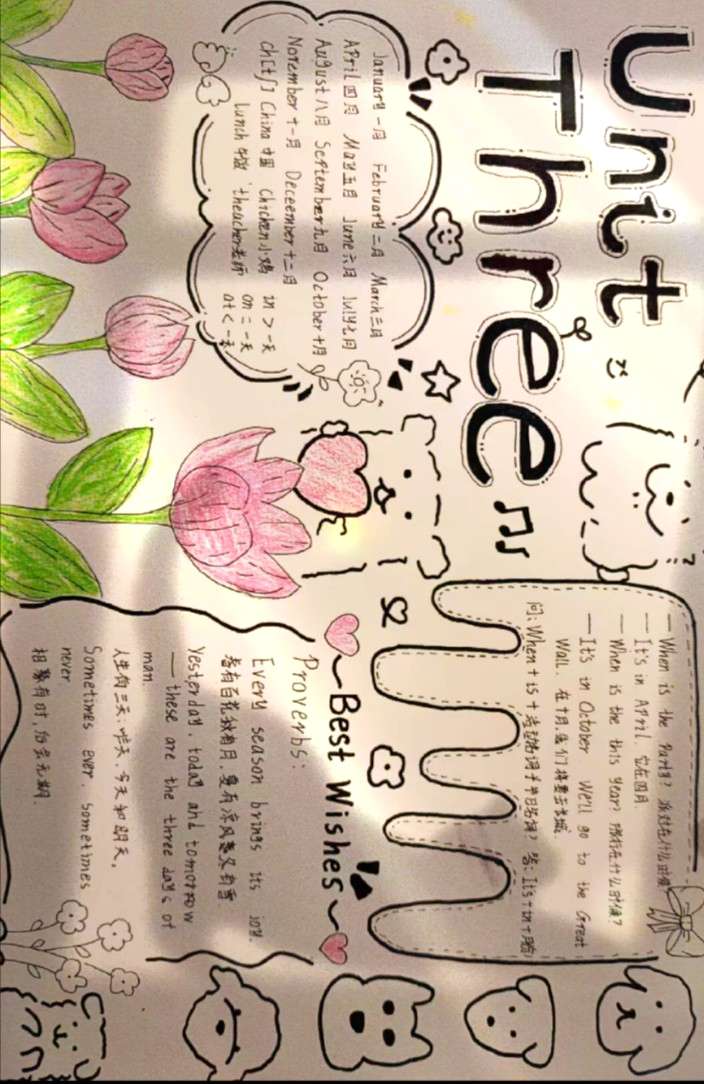 Unit
Three
January 一月 February 二月 March 三月
April 四月 May 五月 June 六月 July 七月
August 八月 September 九月 October 十月
November 十一月 Deceember 十二月
ch[tʃ] China 中国 Chichen 小鸡
Lunch 午饭 theacher 老师
in > 一天
on = 一天
at < 一天
— When is the Party? 派对在什么时候
— It's in April. 它在四月
— When is the this year? 旅行在什么时候?
— It's in October We'll go to the Great
Wall. 在十月,我们将要去长城
问: When + is + 活动名词/节日名词? 答: It's + in + 月份
~Best Wishes~
Proverbs:
Every season brings its joy.
春有百花秋有月,夏有凉风冬有雪
Yesterday, today and tomorrow
— these are the three days of
man.
人生有三天:昨天,今天和明天。
Sometimes ever, sometimes
never
相聚有时,后会无期.